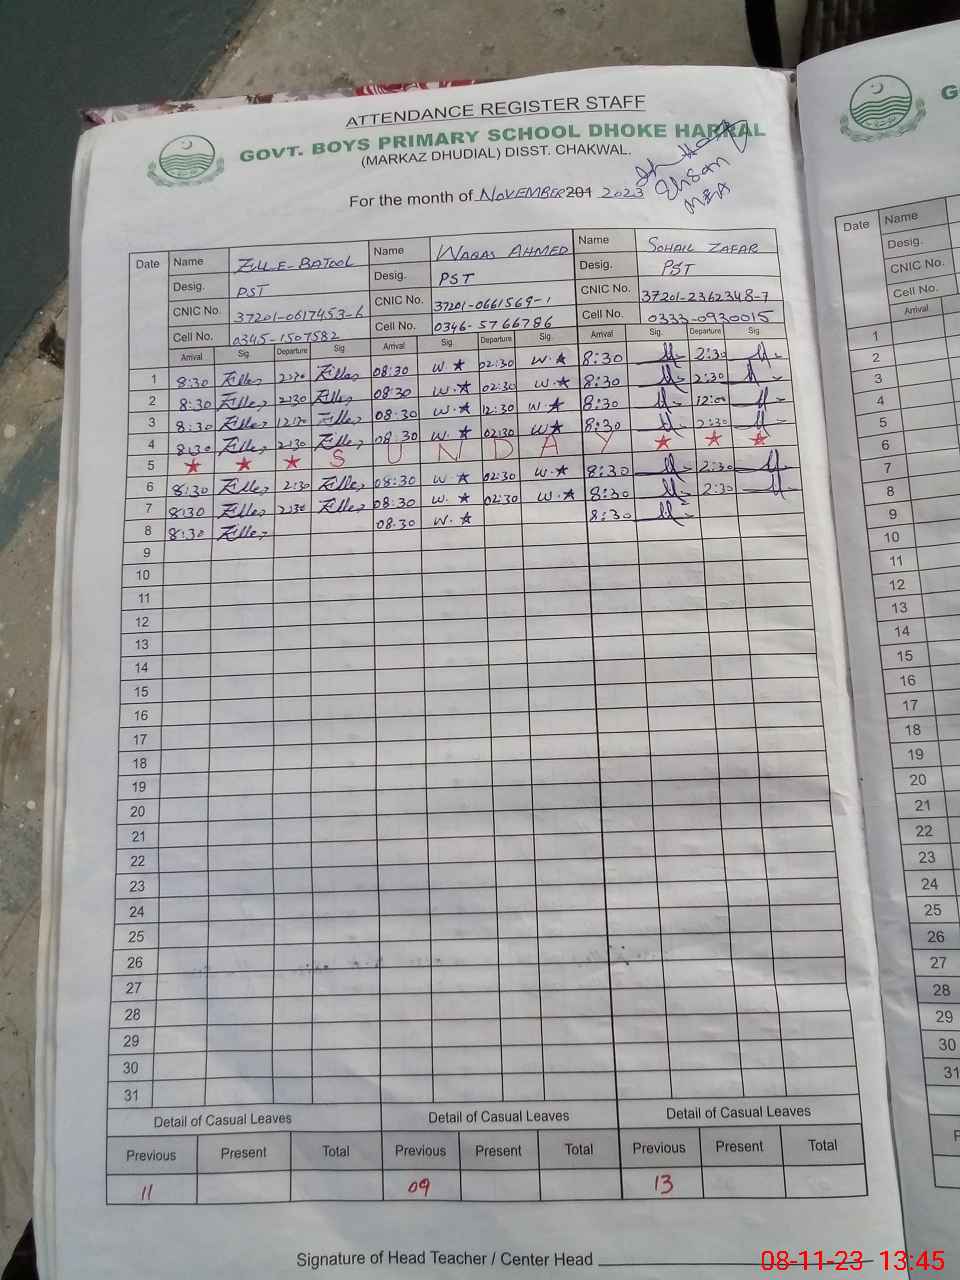 ATTENDANCE REGISTER STAFF
GOVT. BOYS PRIMARY SCHOOL DHOKE HARRAL
(MARKAZ DHUDIAL) DISST. CHAKWAL.
For the month of NOVEMBER 201 2023
Ehsan
MEA
Date Name ZILLE-BATOOL Name WAQAS AHMED Name SOHAIL ZAFAR
Desig. PST Desig. PST Desig. PST
CNIC No. 37201-0617453-6 CNIC No. 37201-0661569-1 CNIC No. 37201-2362348-7
Cell No. 0345-1507582 Cell No. 0346-5766786 Cell No. 0333-0930015
Arrival Sig. Departure Sig. Arrival Sig. Departure Sig. Arrival Sig. Departure Sig.
1 8:30 Zille 2:30 Zille 08:30 W.★ 02:30 W.★ 8:30 2:30
2 8:30 Zille 2:30 Zille 08:30 W.★ 02:30 W.★ 8:30 2:30
3 8:30 Zille Zille 08:30 W.★ 12:30 W.★ 8:30 12:00
4 8:30 Zille 2:30 Zille 08:30 W.★ 02:30 W★ 8:30 2:30
5 ★ ★ ★ S U N D A Y ★ ★ ★
6 8:30 Zille 2:30 Zille 08:30 W.★ 02:30 W.★ 8:30 2:30
7 8:30 Zille 2:30 Zille 08:30 W.★ 02:30 W.★ 8:30 2:30
8 8:30 Zille 08:30 W.★ 8:30
9
10
11
12
13
14
15
16
17
18
19
20
21
22
23
24
25
26
27
28
29
30
31
Detail of Casual Leaves Detail of Casual Leaves Detail of Casual Leaves
Previous Present Total Previous Present Total Previous Present Total
11 09 13
Signature of Head Teacher / Center Head
G
Date Name
Desig.
CNIC No.
Cell No.
Arrival
1
2
3
4
5
6
7
8
9
10
11
12
13
14
15
16
17
18
19
20
21
22
23
24
25
26
27
28
29
30
31
P
08-11-23 13:45